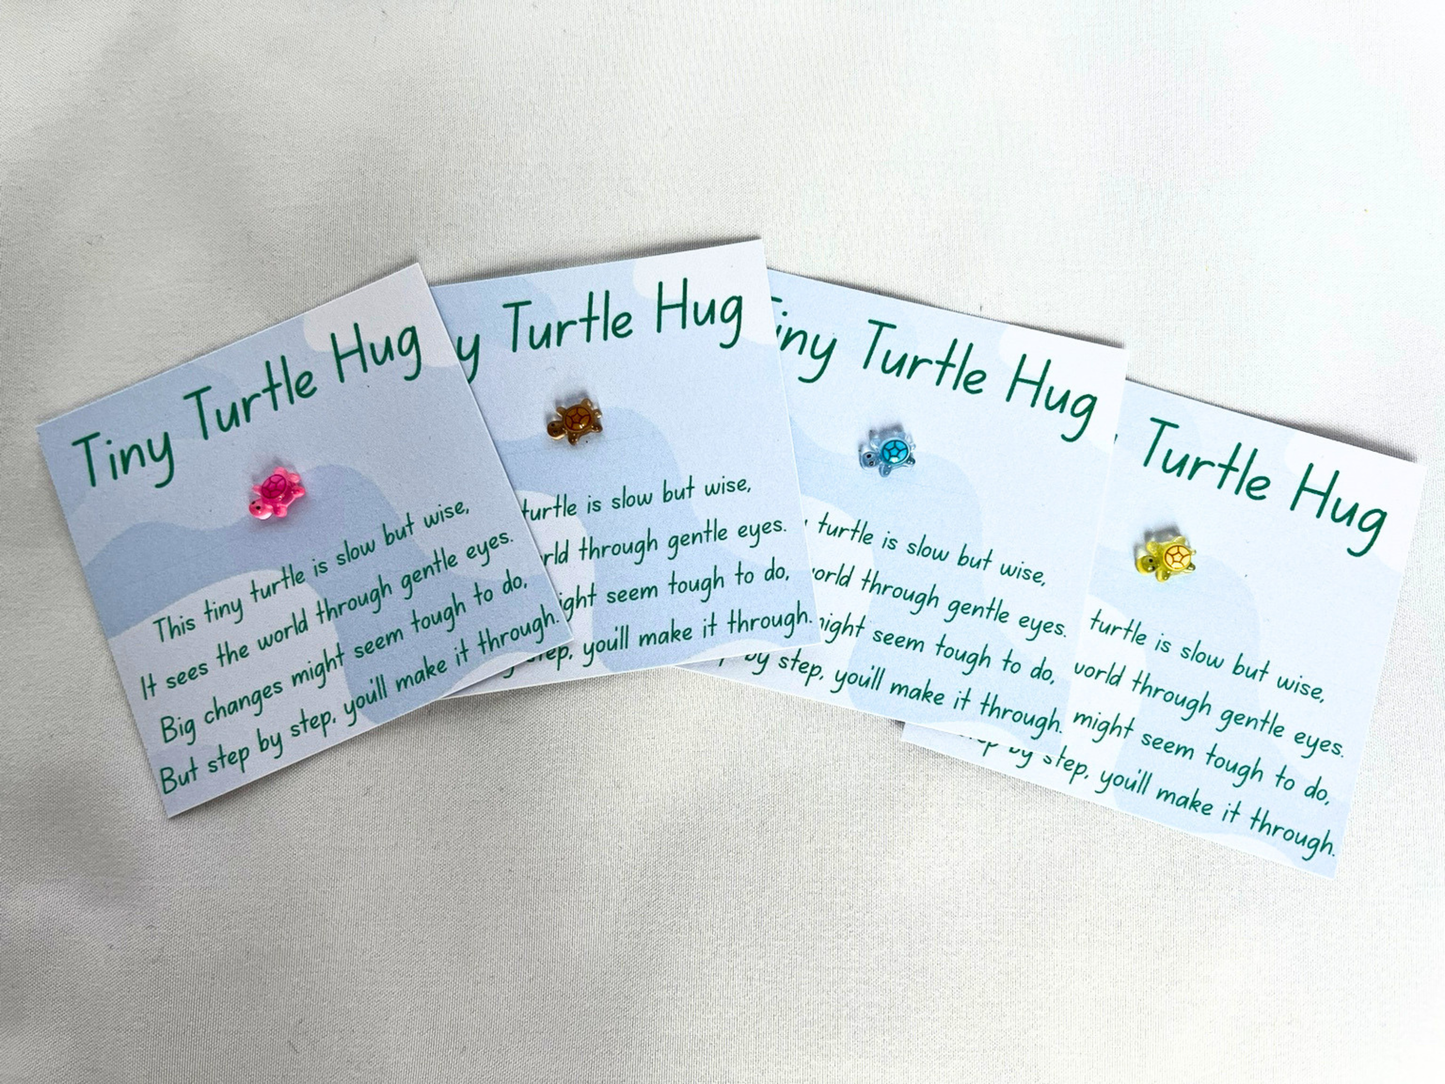 Tiny Turtle Hug
This tiny turtle is slow but wise,
It sees the world through gentle eyes.
Big changes might seem tough to do,
But step by step, you'll make it through.
y Turtle Hug
turtle is slow but wise,
rld through gentle eyes.
ight seem tough to do,
step, you'll make it through.
iny Turtle Hug
turtle is slow but wise,
orld through gentle eyes.
might seem tough to do,
by step, you'll make it through.
Turtle Hug
turtle is slow but wise,
world through gentle eyes.
might seem tough to do,
step by step, you'll make it through.